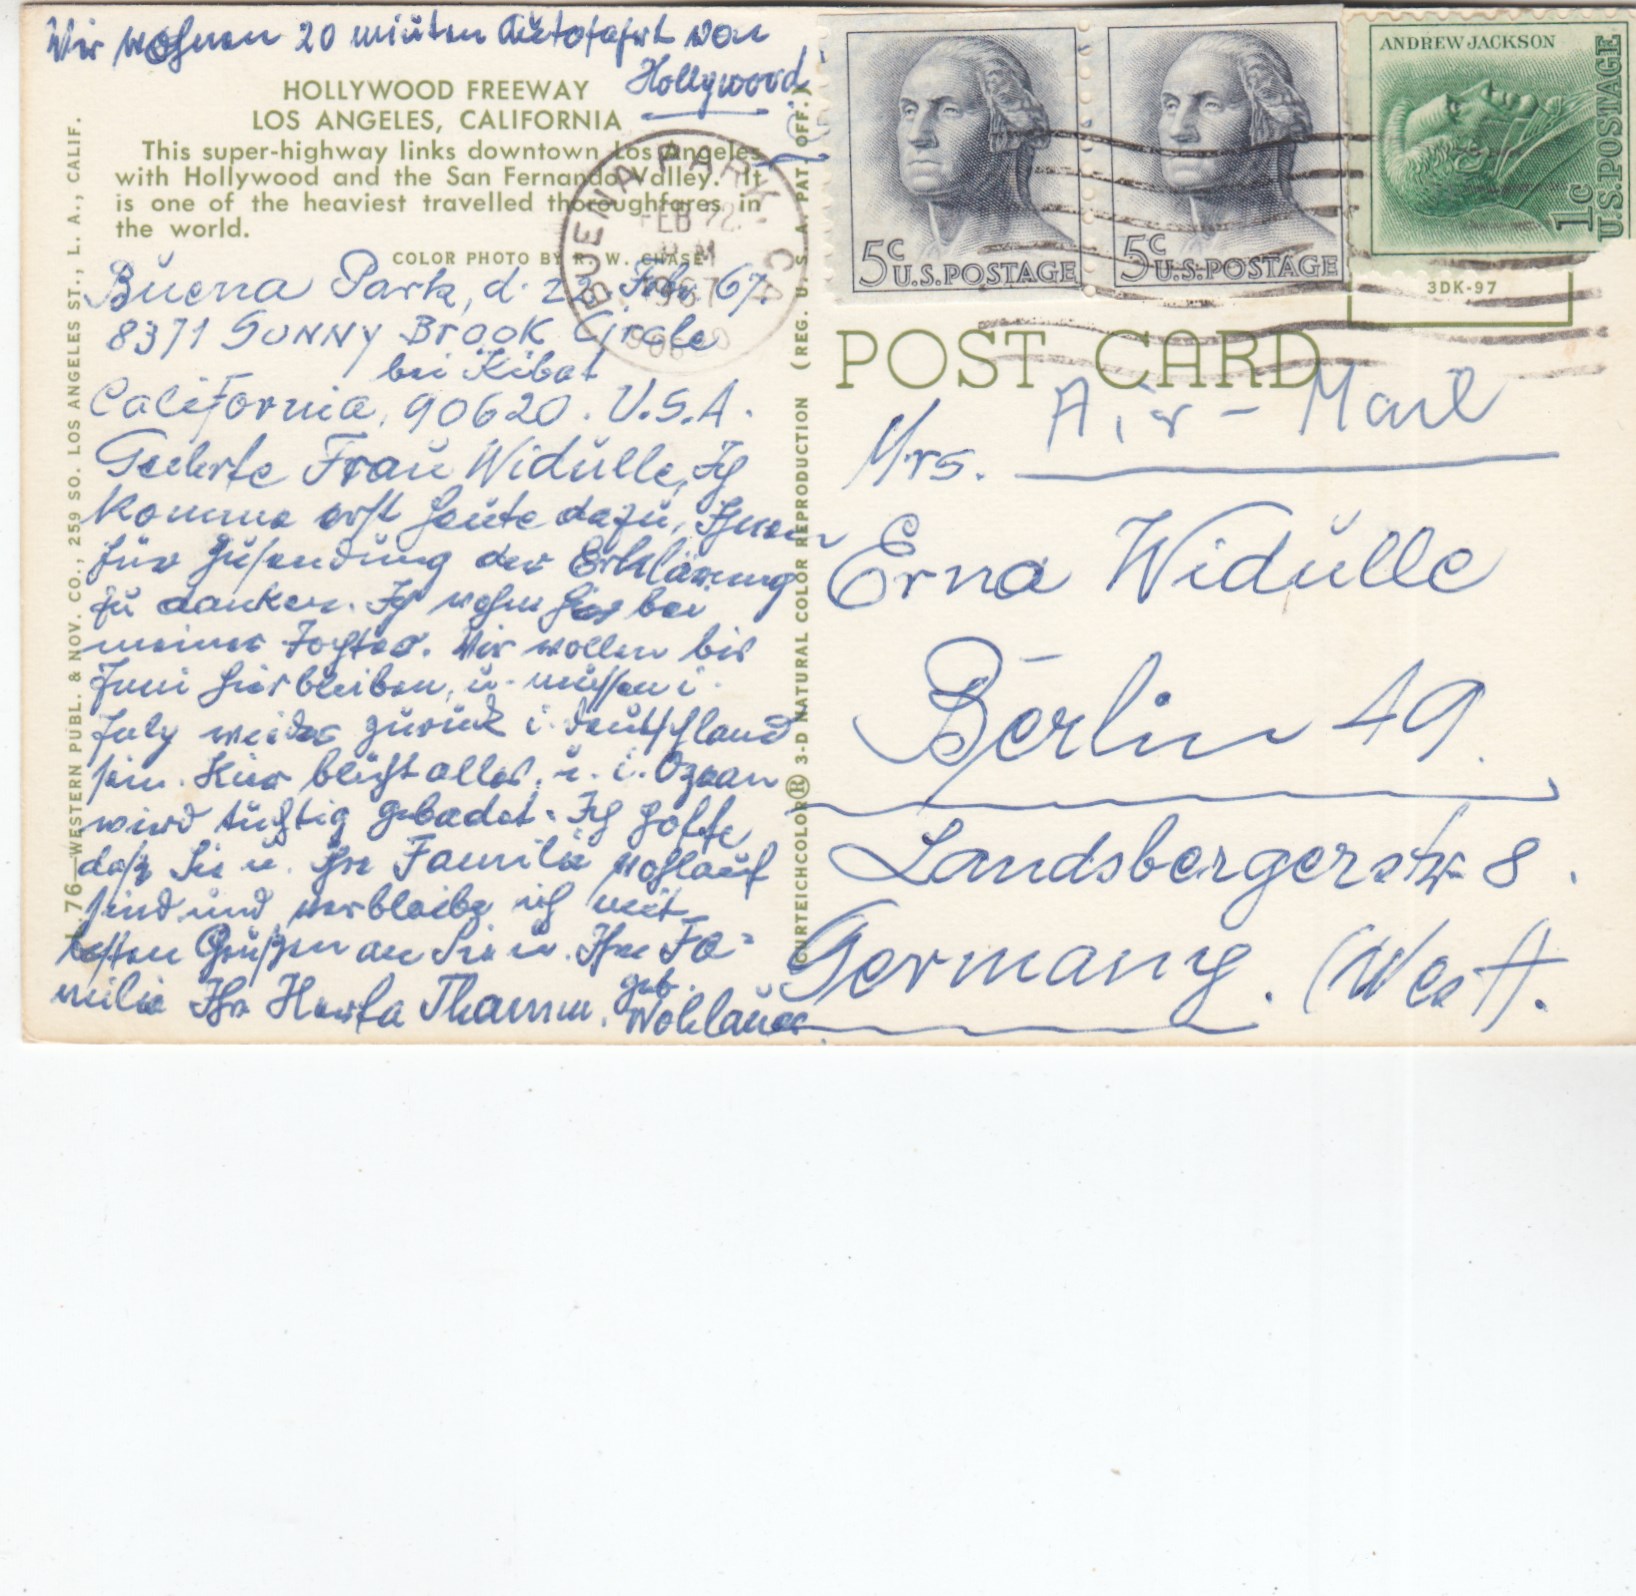 Wir wohnen 20 minuten Autofahrt von
Hollywood
HOLLYWOOD FREEWAY
LOS ANGELES, CALIFORNIA
This super-highway links downtown Los Angeles
with Hollywood and the San Fernando Valley. It
is one of the heaviest travelled thoroughfares in
the world.
COLOR PHOTO BY R. W. CHASE
BUENA PARK, CA
FEB 22
PM
1967
Buena Park, d. 22. Feb. 67.
8371 Sunny Brook Circle
bei Kibat
California, 90620. U.S.A.
Geehrte Frau Widulle, Ich
komme erst heute dazu, Ihnen
für Zusendung der Erklärung
zu danken. Ich wohne hier bei
meiner Tochter. Wir wollen bis
Juni hierbleiben, u. müssen i.
July wieder zurück i. Deutschland
sein. Hier blüht alles, u. i. Ozean
wird tüchtig gebadet. Ich hoffe
daß Sie u. Ihre Familie wohlauf
sind und verbleibe ich mit
besten Grüßen an Sie u. Ihre Fa=
milie Ihre Herta Thamm, geb.
Wohlauer
L.76—WESTERN PUBL. & NOV. CO., 259 SO. LOS ANGELES ST., L. A., CALIF.
CURTEICHCOLOR® 3-D NATURAL COLOR REPRODUCTION (REG. U. S. A. PAT. OFF.)
5c U.S. POSTAGE
5c U.S. POSTAGE
ANDREW JACKSON
1c
U.S. POSTAGE
3DK-97
POST CARD
Air-Mail
Mrs.
Erna Widulle
Berlin 49.
Landsbergerstr 8.
Germany. (West).